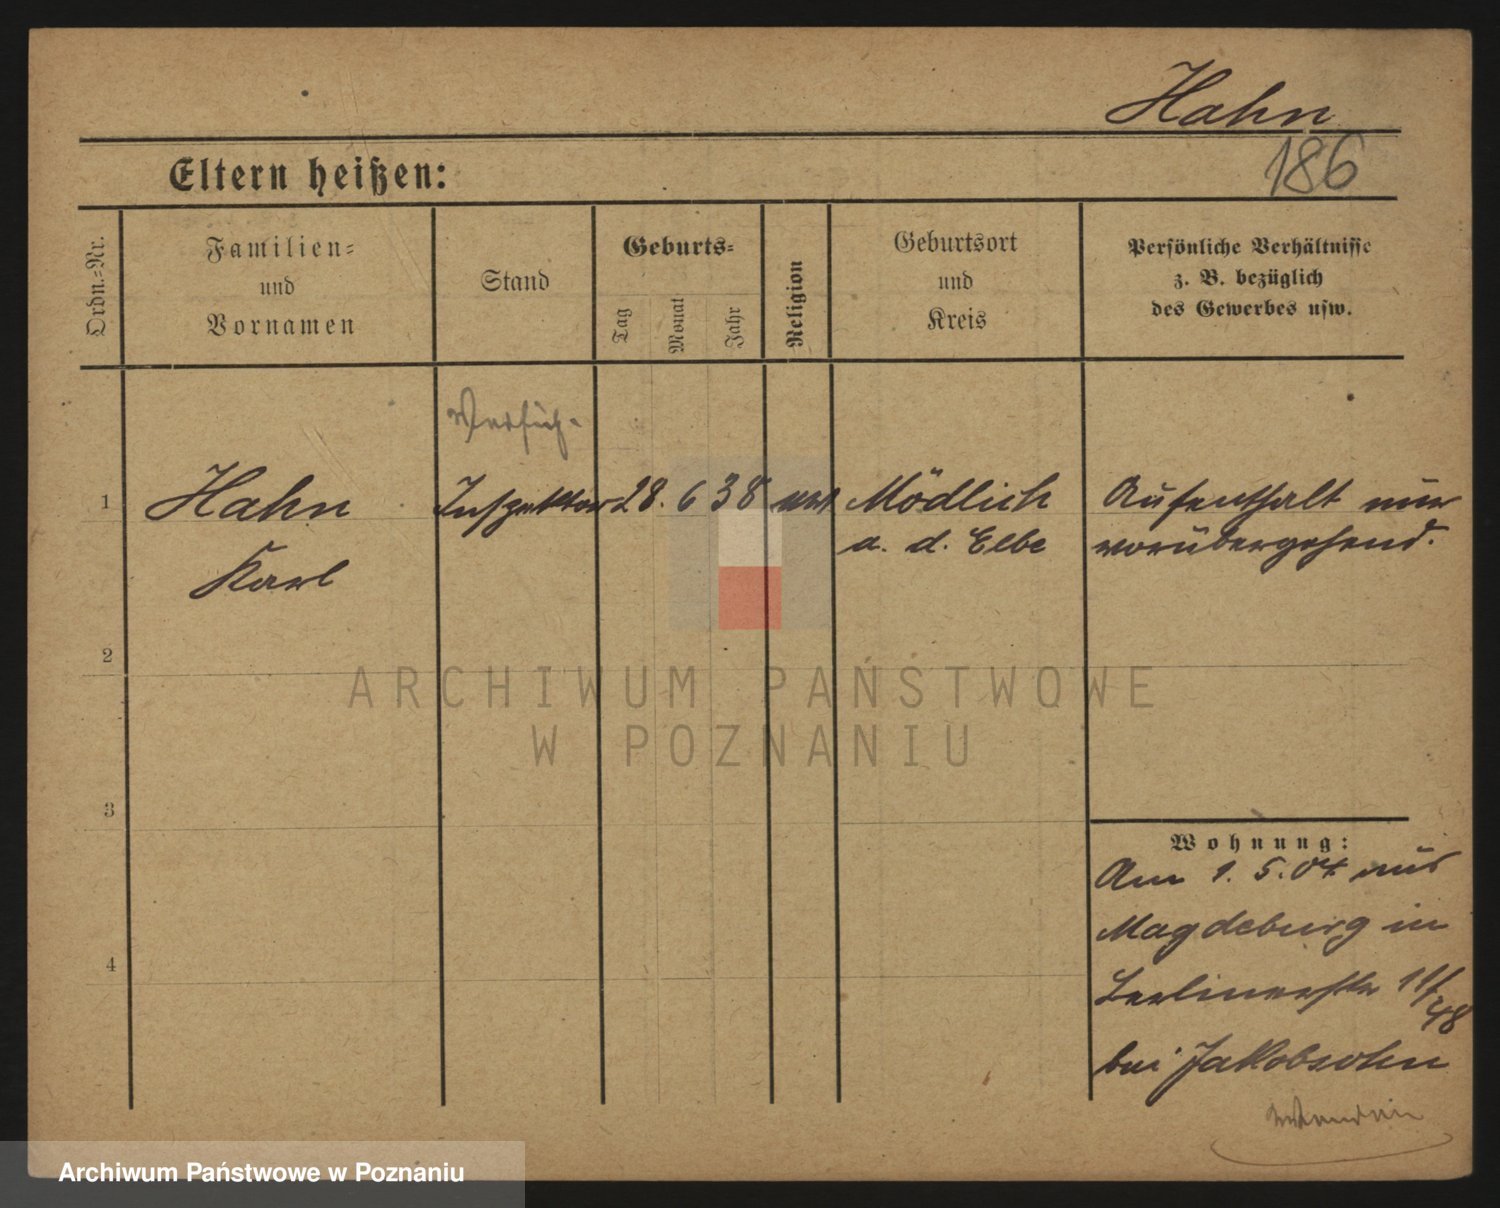 Hahn
186
Eltern heißen:
Ordn.-Nr.
Familien-
und
Vornamen
Stand
Geburts-
Tag
Monat
Jahr
Religion
Geburtsort
und
Kreis
Persönliche Verhältnisse
z. B. bezüglich
des Gewerbes usw.
1
Hahn
Karl
Inspektor
28. 6 38
Mödlich
a. d. Elbe
Aufenthalt nur
vorübergehend.
2
3
4
Wohnung:
Am 1. 5. 04 aus
Magdeburg in
Berlinerstr 11/
48
bei Jakobsohn
ARCHIWUM PAŃSTWOWE
W POZNANIU
Archiwum Państwowe w Poznaniu